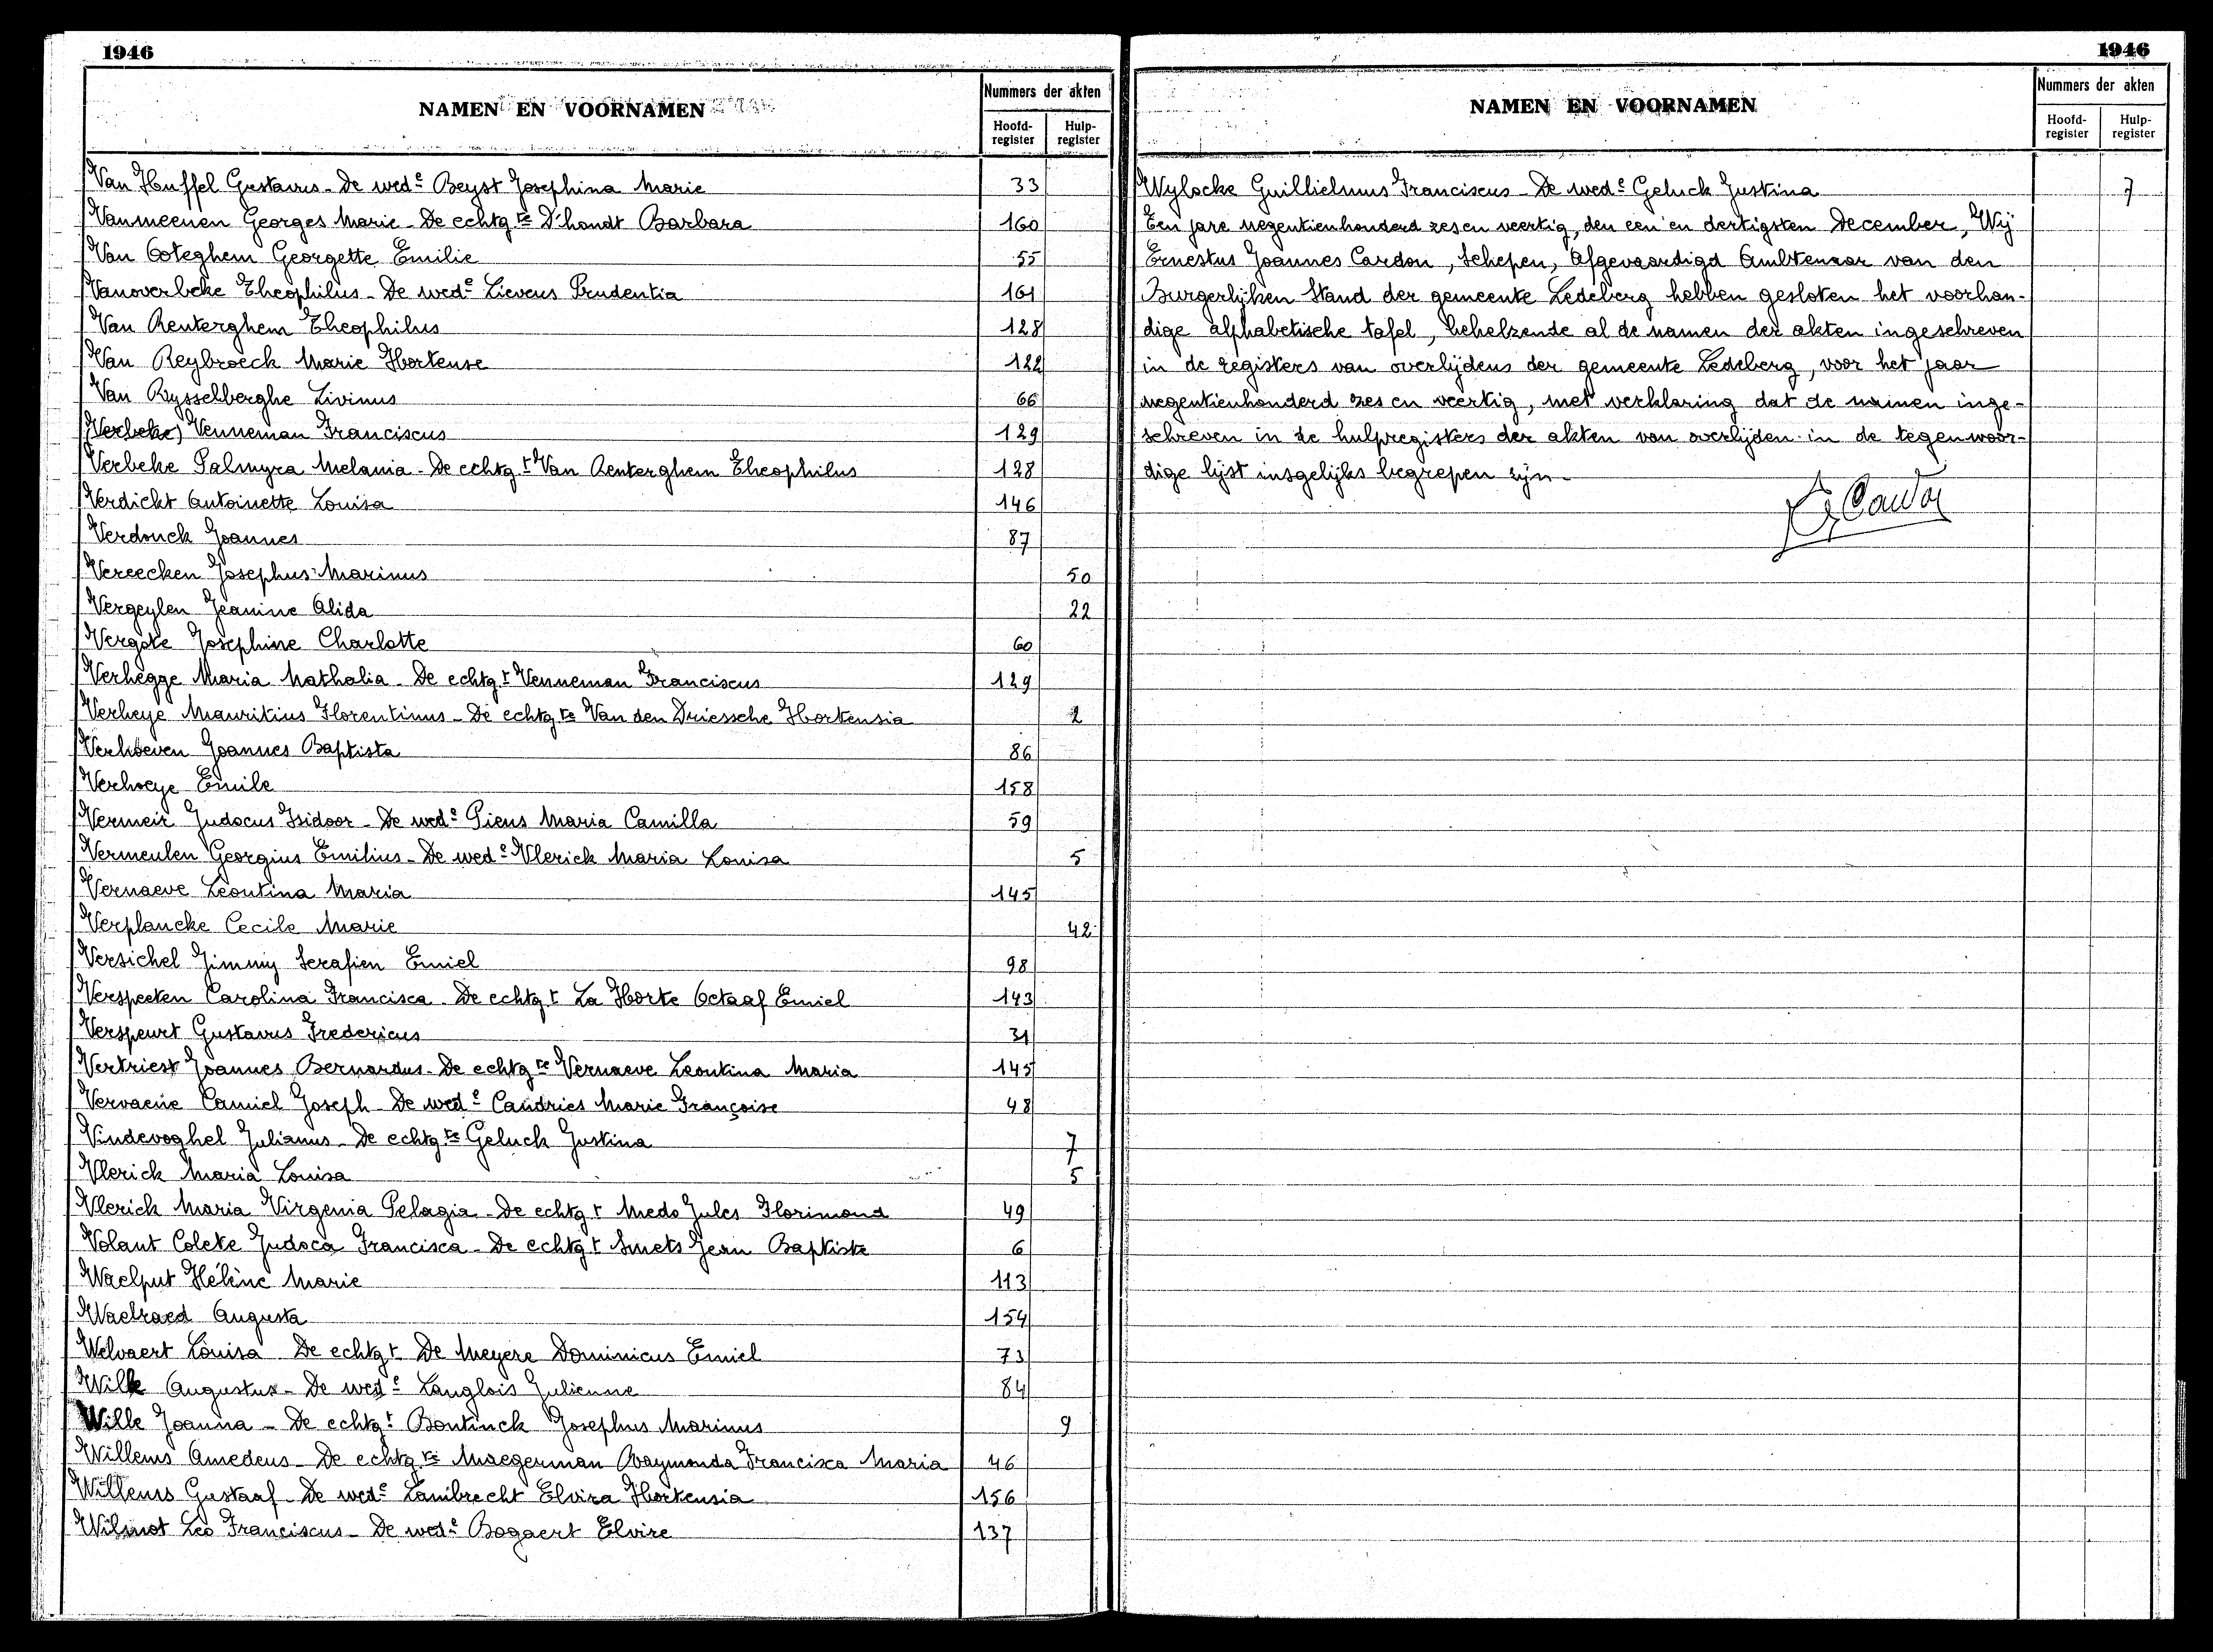 1946
NAMEN EN VOORNAMEN
Nummers der akten
Hoofd-register
Hulp-register
Van Huffel Gustavus - De wede Beyst Josephina Marie 33
Vanmeenen Georges Marie - De echtgte D'hondt Barbara 160
Van Ooteghem Georgette Emilie 55
Vanoverbeke Theophilus - De wede Lievens Prudentia 161
Van Renterghem Theophilus 128
Van Reybroeck Marie Hortense 122
Van Rysselberghe Livinus 66
(Verbeke) Venneman Franciscus 129
Verbeke Palmyra Melania - De echtgt Van Renterghem Theophilus 128
Verdickt Antoinette Louisa 146
Verdonck Joannes 87
Vereecken Josephus Marinus 50
Vergeylen Jeanine Alida 22
Vergote Josephine Charlotte 60
Verhegge Maria Nathalia - De echtgt Venneman Franciscus 129
Verheye Mauritius Florentinus - De echtgte Van den Driessche Hortensia 2
Verhoeven Joannes Baptista 86
Verhoeye Emile 158
Vermeir Judocus Isidoor - De wede Piens Maria Camilla 59
Vermeulen Georgius Emilius - De wede Vlerick Maria Louisa 5
Vernaeve Leontina Maria 145
Verplancke Cecile Marie 42
Versichel Jimmy Serafien Emiel 98
Verspeeten Carolina Francisca - De echtgt La Horte Octaaf Emiel 143
Verspeurt Gustavus Fredericus 31
Vertriest Joannes Bernardus - De echtgte Vernaeve Leontina Maria 145
Vervaene Camiel Joseph - De wede Caudries Marie Françoise 48
Vindevoghel Julianus - De echtgte Geluck Justina 7
Vlerick Maria Louisa 5
Vlerick Maria Virgenia Pelagia - De echtgt Medo Jules Florimond 49
Volant Colete Judoca Francisca - De echtgt Smets Jean Baptiste 6
Waelput Hélène Marie 113
Waelraed Augusta 154
Welvaert Louisa De echtgt De Meyere Dominicus Emiel 73
Wille Augustus - De wede Langlois Julienne 84
Wille Joanna - De echtgt Bontinck Josephus Marinus 9
Willems Amedeus - De echtgte Maegerman Raymonda Francisca Maria 46
Willems Gustaaf - De wede Lambrecht Elvira Hortensia 156
Wilmot Leo Franciscus - De wede Bogaert Elvire 137
1946
NAMEN EN VOORNAMEN
Nummers der akten
Hoofd-register
Hulp-register
Wylocke Guillielmus Franciscus - De wede Geluck Justina 7
Ten jare negentienhonderd zes en veertig, den een en dertigsten December, Wij
Ernestus Joannes Cardon, Schepen, Afgevaardigd Ambtenaar van den
Burgerlijken Stand der gemeente Ledeberg hebben gesloten het voorhan-
dige alphabetische tafel, behelzende al de namen der akten ingeschreven
in de registers van overlijdens der gemeente Ledeberg, voor het jaar
negentienhonderd zes en veertig, met verklaring dat de namen inge-
schreven in de hulpregisters der akten van overlijden in de tegenwoor-
dige lijst insgelijks begrepen zijn.